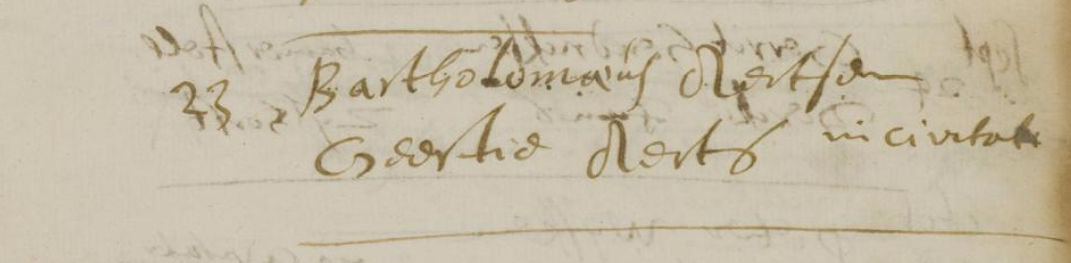 23 Bartholomæus Aertsen
Geertie Aerts in civitate